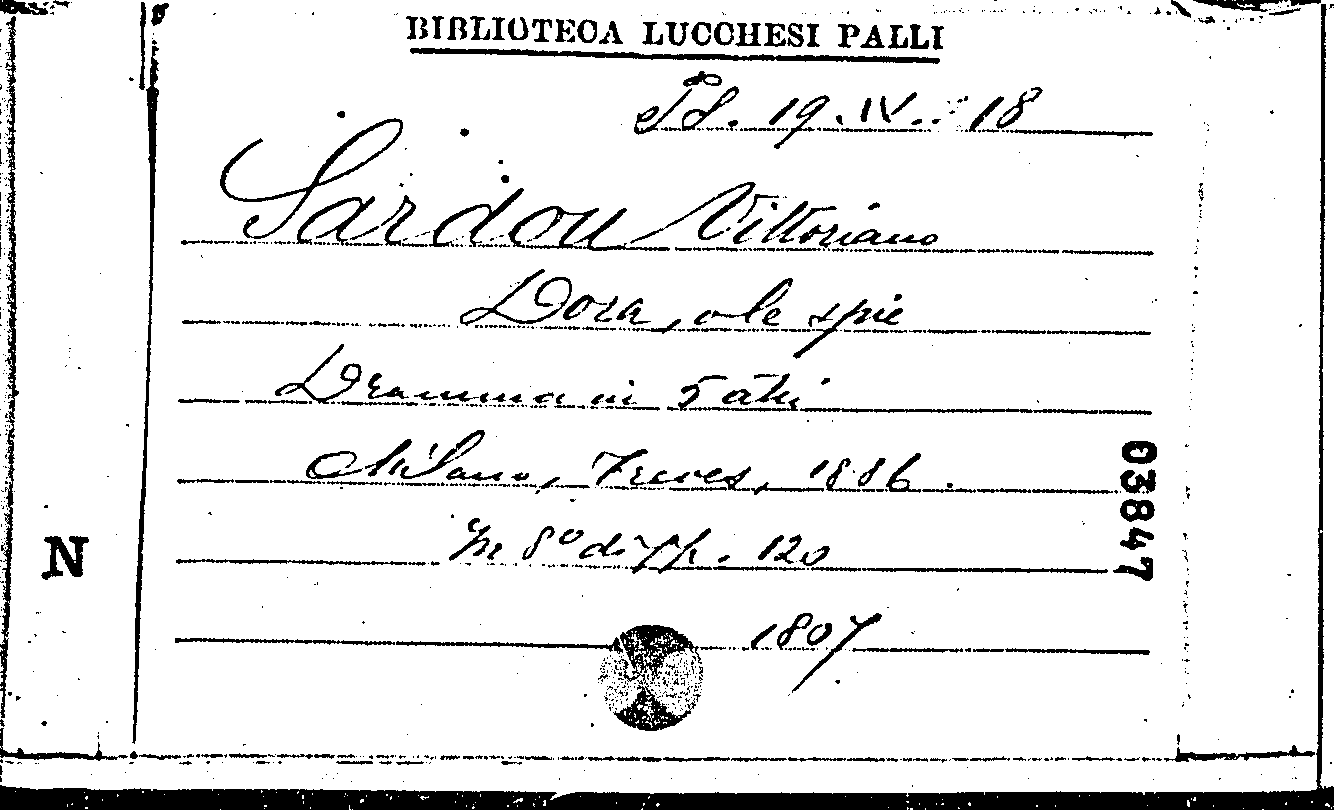 BIBLIOTECA LUCCHESI PALLI
Sc. 19. IV. 18
Sardou Vittoriano
Dora, o le spie
Dramma in 5 atti
Milano, Treves, 1886.
In 8º di pp. 120
1807
N
03847